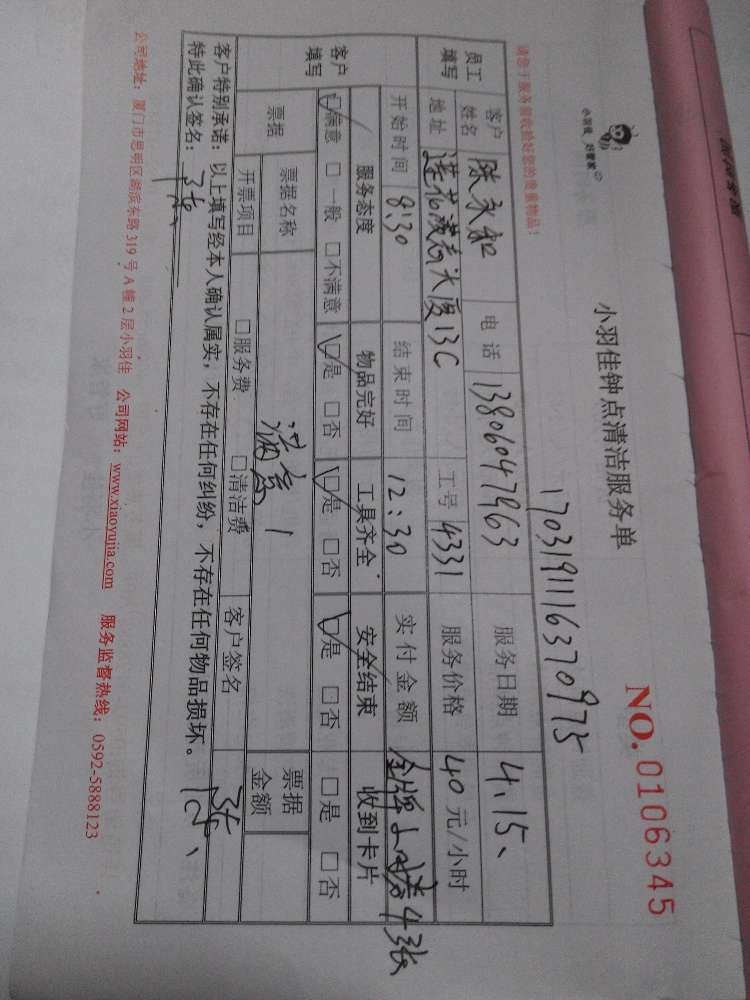 小羽佳 好管家
小羽佳钟点清洁服务单
NO. 0106345
1703191116370975
请您于服务前收捡好您的贵重物品!
员工填写 客户姓名 陈永和 电话 13806047963 服务日期 4.15、
地址 莲花 大厦13C 工号 4331 服务价格 40元/小时
开始时间 8:30 结束时间 12:30 实付金额 金牌 4张
客户填写 服务态度 物品完好 工具齐全 安全结束 收到卡片
□满意 □一般 □不满意 □是 □否 □是 □否 □是 □否 □是 □否
票据 票据名称 满意! 票据金额
开票项目 □服务费 □清洁费 客户签名
客户特别承诺:以上填写经本人确认属实,不存在任何纠纷,不存在任何物品损坏。
特此确认签名:
公司地址:厦门市思明区湖滨东路319号A幢2层小羽佳 公司网站:www.xiaoyujia.com 服务监督热线:0592-5888123